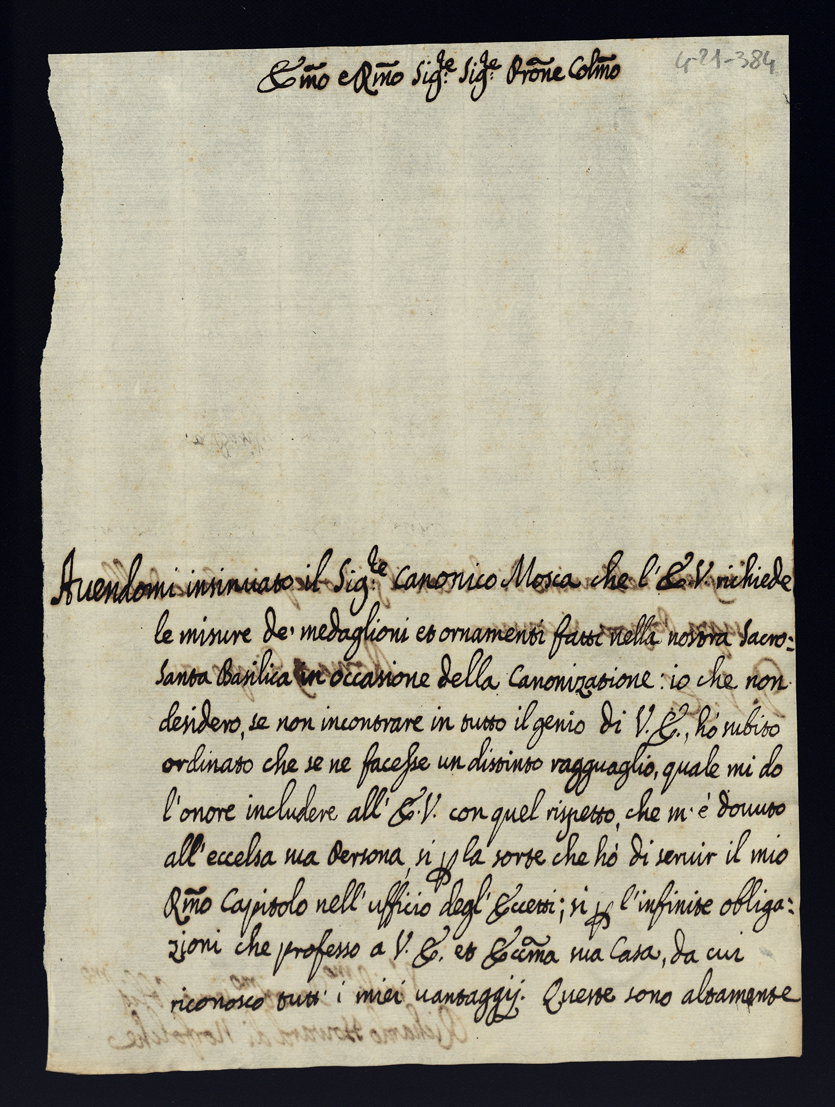 4-21-384
Emo e Rmo Sigre Sigre Prone Colmo
Auendomi insinuato il Sigre Canonico Mosca che l'E.V. richiede
le misure de' medaglioni et ornamenti fatti nella nostra Sacro=
Santa Basilica in occasione della Canonizatione: io che non
desidero, se non incontrare in tutto il genio di V.E., hò subito
ordinato che se ne facesse un distinto ragguaglio, quale mi do
l'onore includere all'E.V. con quel rispetto, che m'è douuto
all'eccelsa sua Persona, si p la sorte che hò di seruir il mio
Rmo Capitolo nell'ufficio degl'Eccetti; si p l'infinite obliga=
zioni che professo a V.E. et Eccma sua Casa, da cui
riconosco tutt'i miei uantaggij. Queste sono altamente